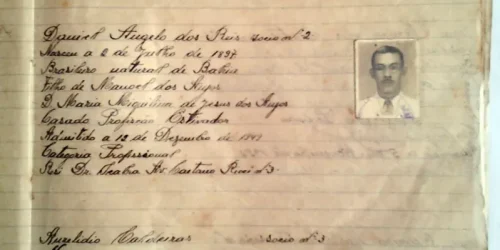 Daniel Angelo dos Reis socio nº 2
Nasceu a 2 de Julho de
Brasileiro natural de Bahia
Filho de Manoel dos
D. Maria de Jesus dos
Casado Profissão Estivador
Admitido a 12 de Dezembro de
Categoria Profissional
Resi Dr. Seabra Av. Caetano Nº 3
Aurelidio Caldeiras socio nº 3